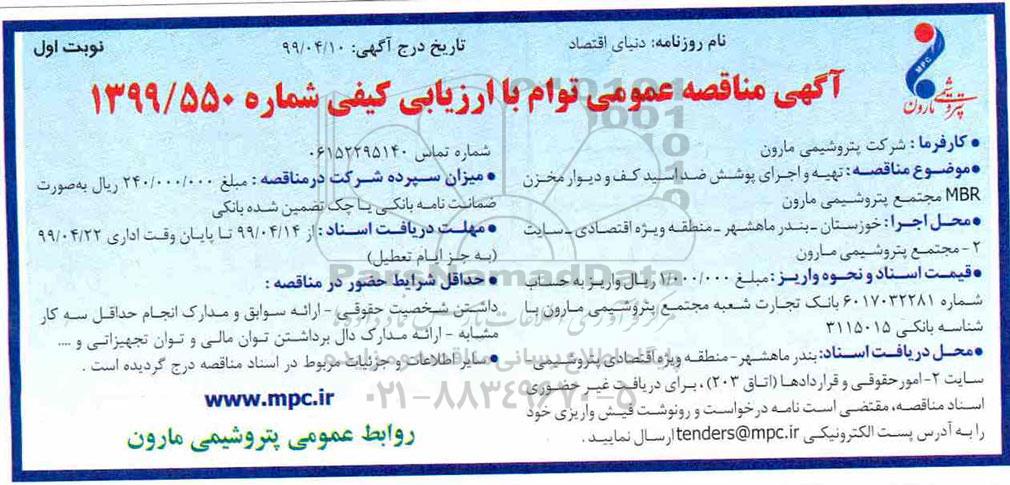 نام روزنامه: دنیای اقتصاد
تاریخ درج آگهی: ۹۹/۰۴/۱۰
نوبت اول
MPC
پتروشیمی مارون
آگهی مناقصه عمومی توام با ارزیابی کیفی شماره ۱۳۹۹/۵۵۰
• کارفرما : شرکت پتروشیمی مارون
• موضوع مناقصه : تهیه و اجرای پوشش ضد اسید کف و دیوار مخزن
MBR مجتمع پتروشیمی مارون
• محل اجرا : خوزستان - بندر ماهشهر - منطقه ویژه اقتصادی - سایت
۲ - مجتمع پتروشیمی مارون
• قیمت اسناد و نحوه واریز : مبلغ ۱/۰۰۰/۰۰۰ ریال واریز به حساب
شماره ۶۰۱۷۰۳۲۲۸۱ بانک تجارت شعبه مجتمع پتروشیمی مارون با
شناسه بانکی ۳۱۱۵۰۱۵
• محل دریافت اسناد : بندر ماهشهر - منطقه ویژه اقتصادی پتروشیمی
سایت ۲ - امور حقوقی و قراردادها (اتاق ۲۰۳)، برای دریافت غیر حضوری
اسناد مناقصه، مقتضی است نامه درخواست و رونوشت فیش واریزی خود
را به آدرس پست الکترونیکی tenders@mpc.ir ارسال نمایید .
شماره تماس ۰۶۱۵۲۲۹۵۱۴۰
• میزان سپرده شرکت در مناقصه : مبلغ ۲۴۰/۰۰۰/۰۰۰ ریال به‌صورت
ضمانت نامه بانکی یا چک تضمین شده بانکی
• مهلت دریافت اسناد : از ۹۹/۰۴/۱۴ تا پایان وقت اداری ۹۹/۰۴/۲۲
(به جز ایام تعطیل)
• حداقل شرایط حضور در مناقصه :
داشتن شخصیت حقوقی - ارائه سوابق و مدارک انجام حداقل سه کار
مشابه - ارائه مدارک دال برداشتن توان مالی و توان تجهیزاتی و ....
• سایر اطلاعات و جزئیات مربوط در اسناد مناقصه درج گردیده است .
www.mpc.ir
روابط عمومی پتروشیمی مارون
ParsNamadData
پایگاه اطلاع رسانی مناقصه و مزایده
۰۲۱-۸۸۳۴۹۶۷۰-۵